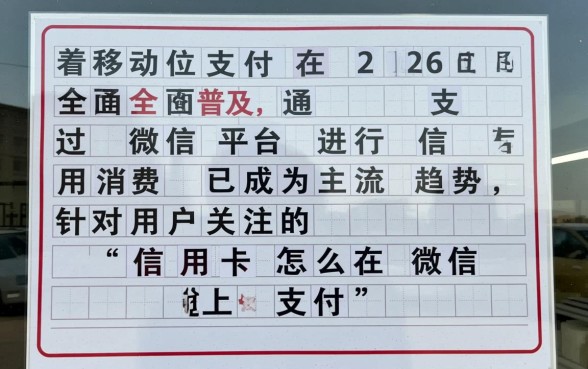 着移动位支付 在 2 26
全面全面普及，通 支
过 微信 平台 进行 信
用消费 已成为主流 趋势，
针对用户关注的
“信用卡 怎么在 微信
上 支付”